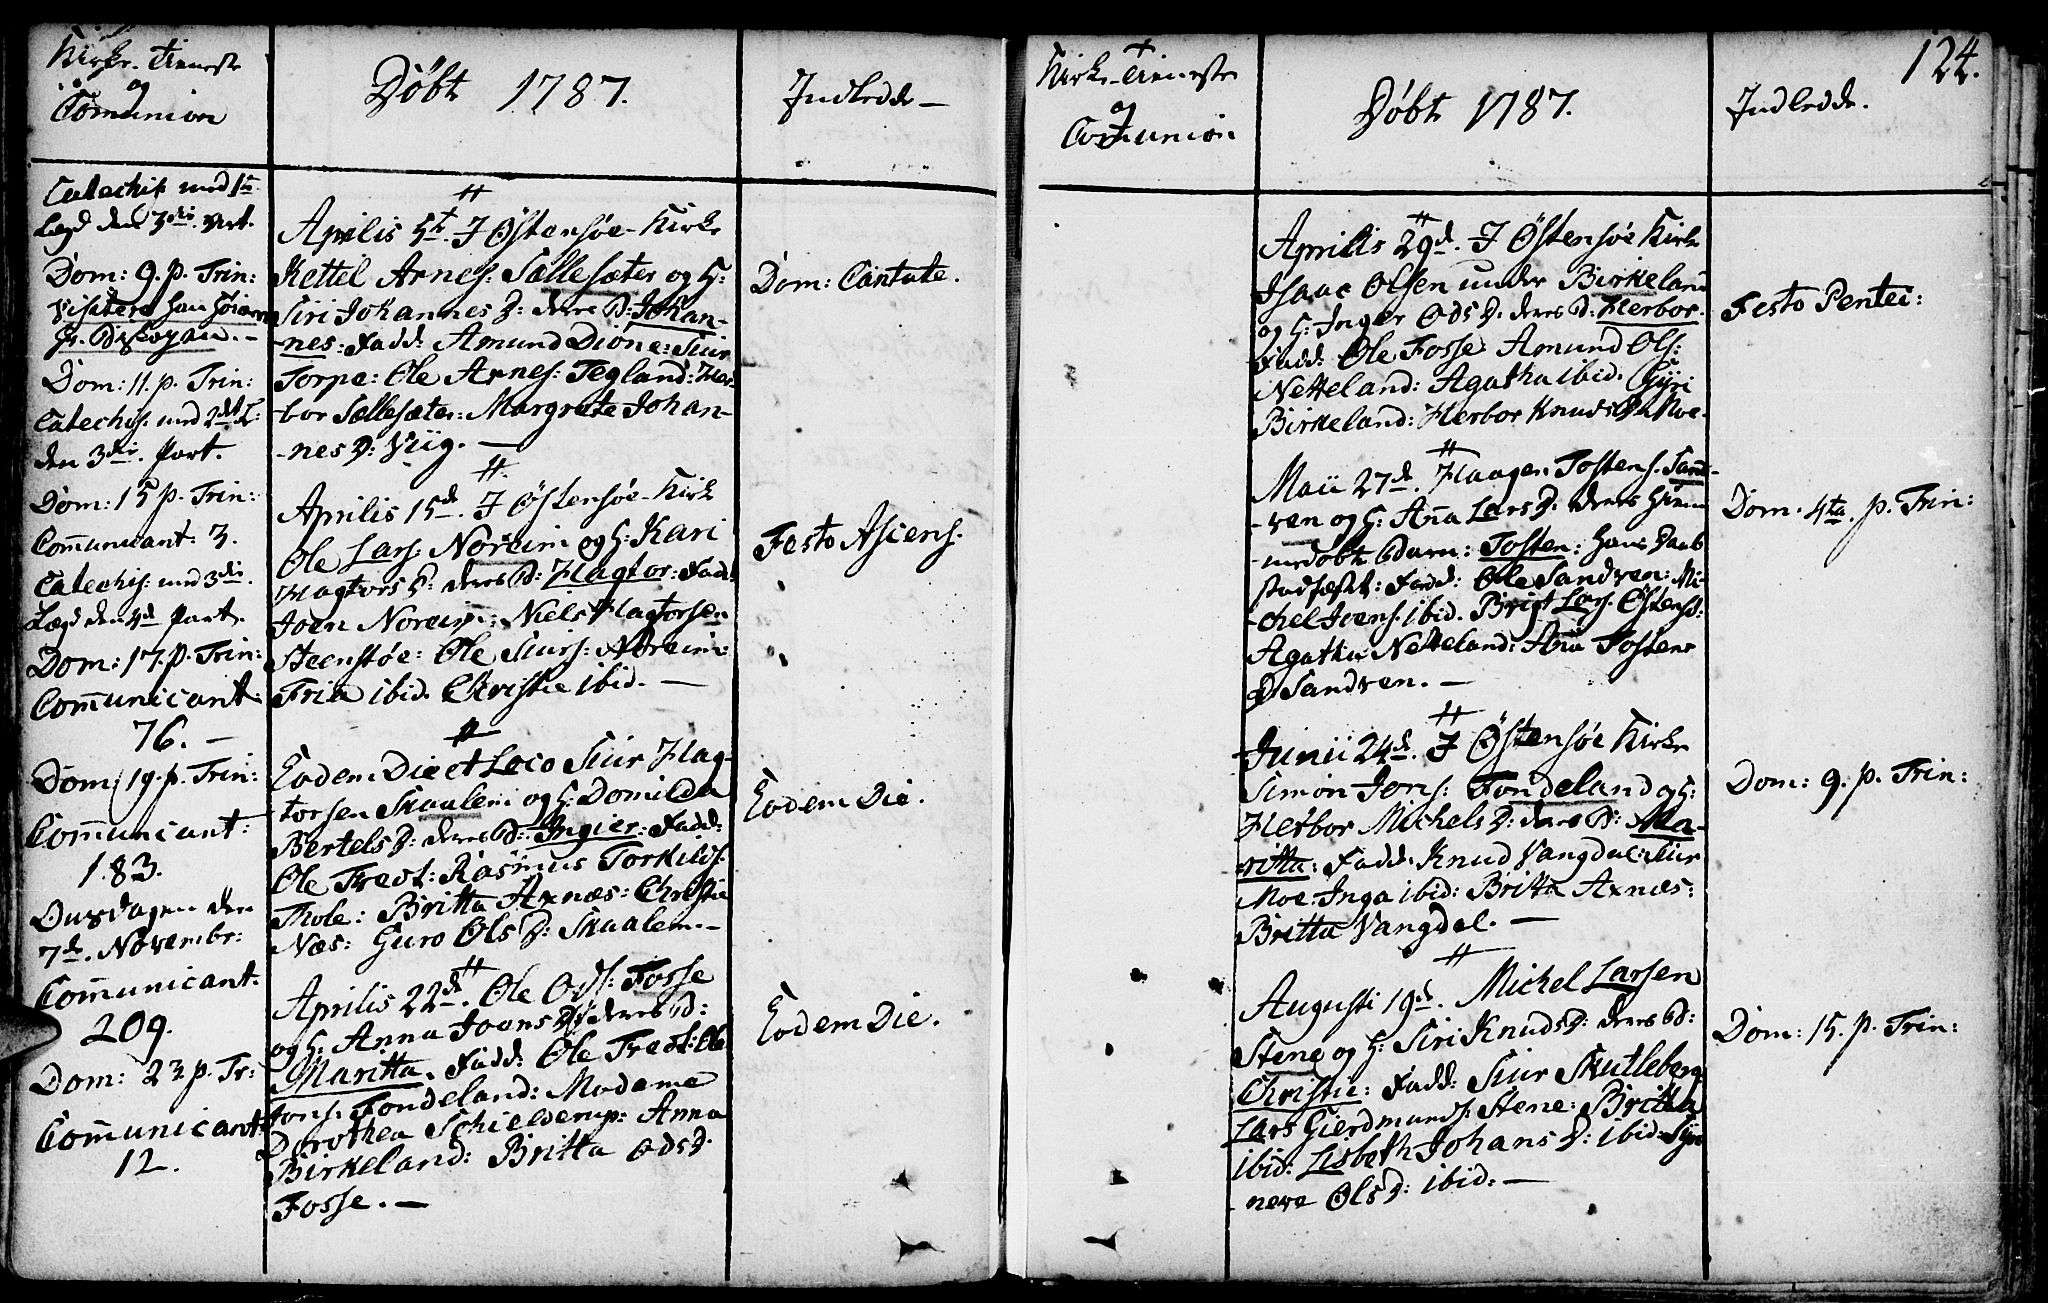 Kirke-Tieneste
og
Comunion
Døbt 1787.
Indledde—
Catechis med 1te
Lægd den 3die Part.
Dom: 9. p. Trin:
visiterte Han
Hr. Biskopen.—
Dom: 11. p. Trin:
Catechis: med 2det L:
den 3die Part.
Dom: 15 p. Trin:
Com̄unicant: 3.
Catechis: med 3die
Lægd den 4de Part.
Dom: 17. p. Trin:
Com̄unicant:
76.—
Dom: 19. p. Trin:
Com̄unicant:
183.
Onsdagen den
7de. Novembr:
Com̄unicant:
209.
Dom: 23 p. Tr:
Com̄unicant:
12.
Aprilis 5t. I Østensøe-Kirke
Kettel Arnes: Sællesæter og H:
Siri Johannes D: deres B: Johan-
-nes: Fadd: Amund Dione: Siur
Torpe: Ole Arnes: Tegland: Her-
bor Sællesæter: Margrete Johan-
-nes D: Viig.—
Aprilis 15de. I Østensøe-Kirke
Ole Lars: Noreim og H: Kari
Hagtors D: deres B: Hagtor: Fadd:
Joen Noreim: Niels Hagtorsen
Steenstøe: Ole Siurs: Noreim:
Tria ibid. Christie ibid.—
Eodem Die et Loco Siur Hag-
torsen Skaalem og H: Domilda
Bertels D: deres B: Ingier: Fadd:
Ole Tredt: Rasmus Torkilds:
Thole: Britta Axnæs: Christie
Næs: Guro Ols D: Skaalem.—
Aprilis 22de. Ole Ods: Fosse
og H: Anna Joans D: deres B:
Maritta. Fadd: Ole Tredt: Ole
Jons: Fondeland: Madame
Dorothea Schielderup: Anna
Birkeland: Britta Ods D
Fosse.—
Dom: Cantate.
Festo Ascens.
Eodem Die.
Eodem Die.
124.
Kirke-Tieneste
og
Communion
Døbt 1787.
Indledde.
Aprilis 29de. I Østensøe Kirke
Isaac Olsen under Birkeland
og H: Inger Ods D. deres B: Herbor.
Fadd: Ole Fosse Amund Ols:
Netteland: Agatha ibid. Gyri
Birkeland: Herbor Knuds D:
Maii 27de. Haagen Tostens. Sand-
-ven og H: Ana Lars D. deres Hiem-
-medøbt Barn: Tosten: hans Daab
stadfæstet: Fadd: Ole Sandven: Mi-
-chel Ivers. ibid. Brigt Lars. Østensø:
Agatha Netteland: Ana Tostens
D Sandven.—
Junii 24de. I Østensøe Kirke
Simon Jons: Fondeland og H:
Herbor Michels D: deres B: Ma-
ritta: Fadd: Knud Vangdal: Siur
Moe: Inga ibid: Britta Axnæs:
Britta Vangdal.—
Augusti 19de. Michel Larsen
Stene og H: Siri Knuds D: deres B:
Christie: Fadd: Siur Skutleberg
Lars Gierdmunds: Stene: Britta
ibid: Lisbeth Johans D: ibid: Syn
-neve Ols D: ibid.—
Festo Pentec:
Dom: 4ta. p. Trin:
Dom: 9. p. Trin:
Dom: 15. p. Trin: